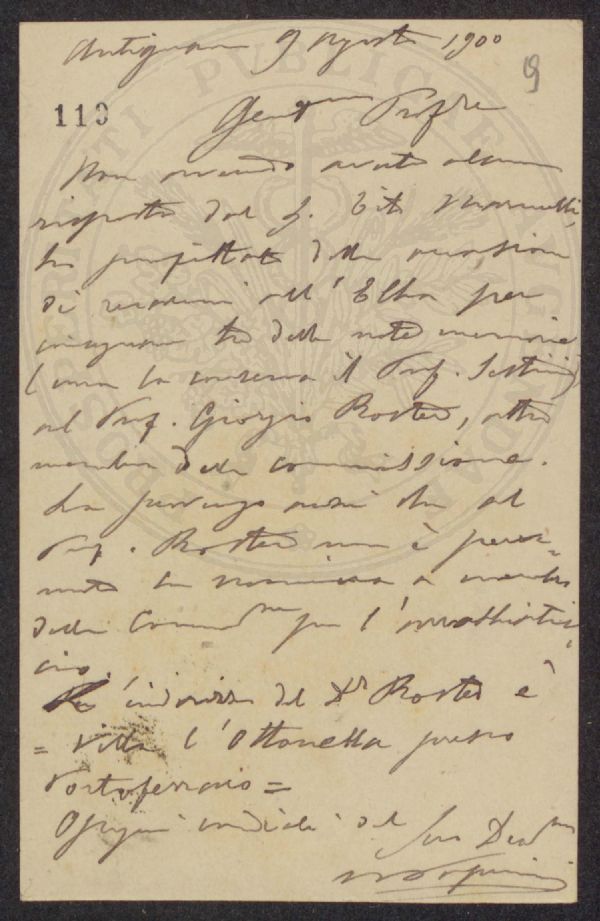 Antignano 9 Agosto 1900
9
110
Gent.mo Prof.re
Non avendo avuto alcuna
risposta dal S. Tito Martelli,
ho profittato della occasione
di recarmi all'Elba per
consegnare tre delle note memorie
(una la conserva il Prof. Sestini)
al Prof. Giorgio Roster, altro
membro della commissione.
La prevengo così che al
Prof. Roster non è perve=
nuta la nomina a membro
della Comm.ne per l'
L'indirizzo del Dr Roster è
= Villa l'Ottonella presso
Portoferraio =
Ossequi cordiali del Suo Dev.mo